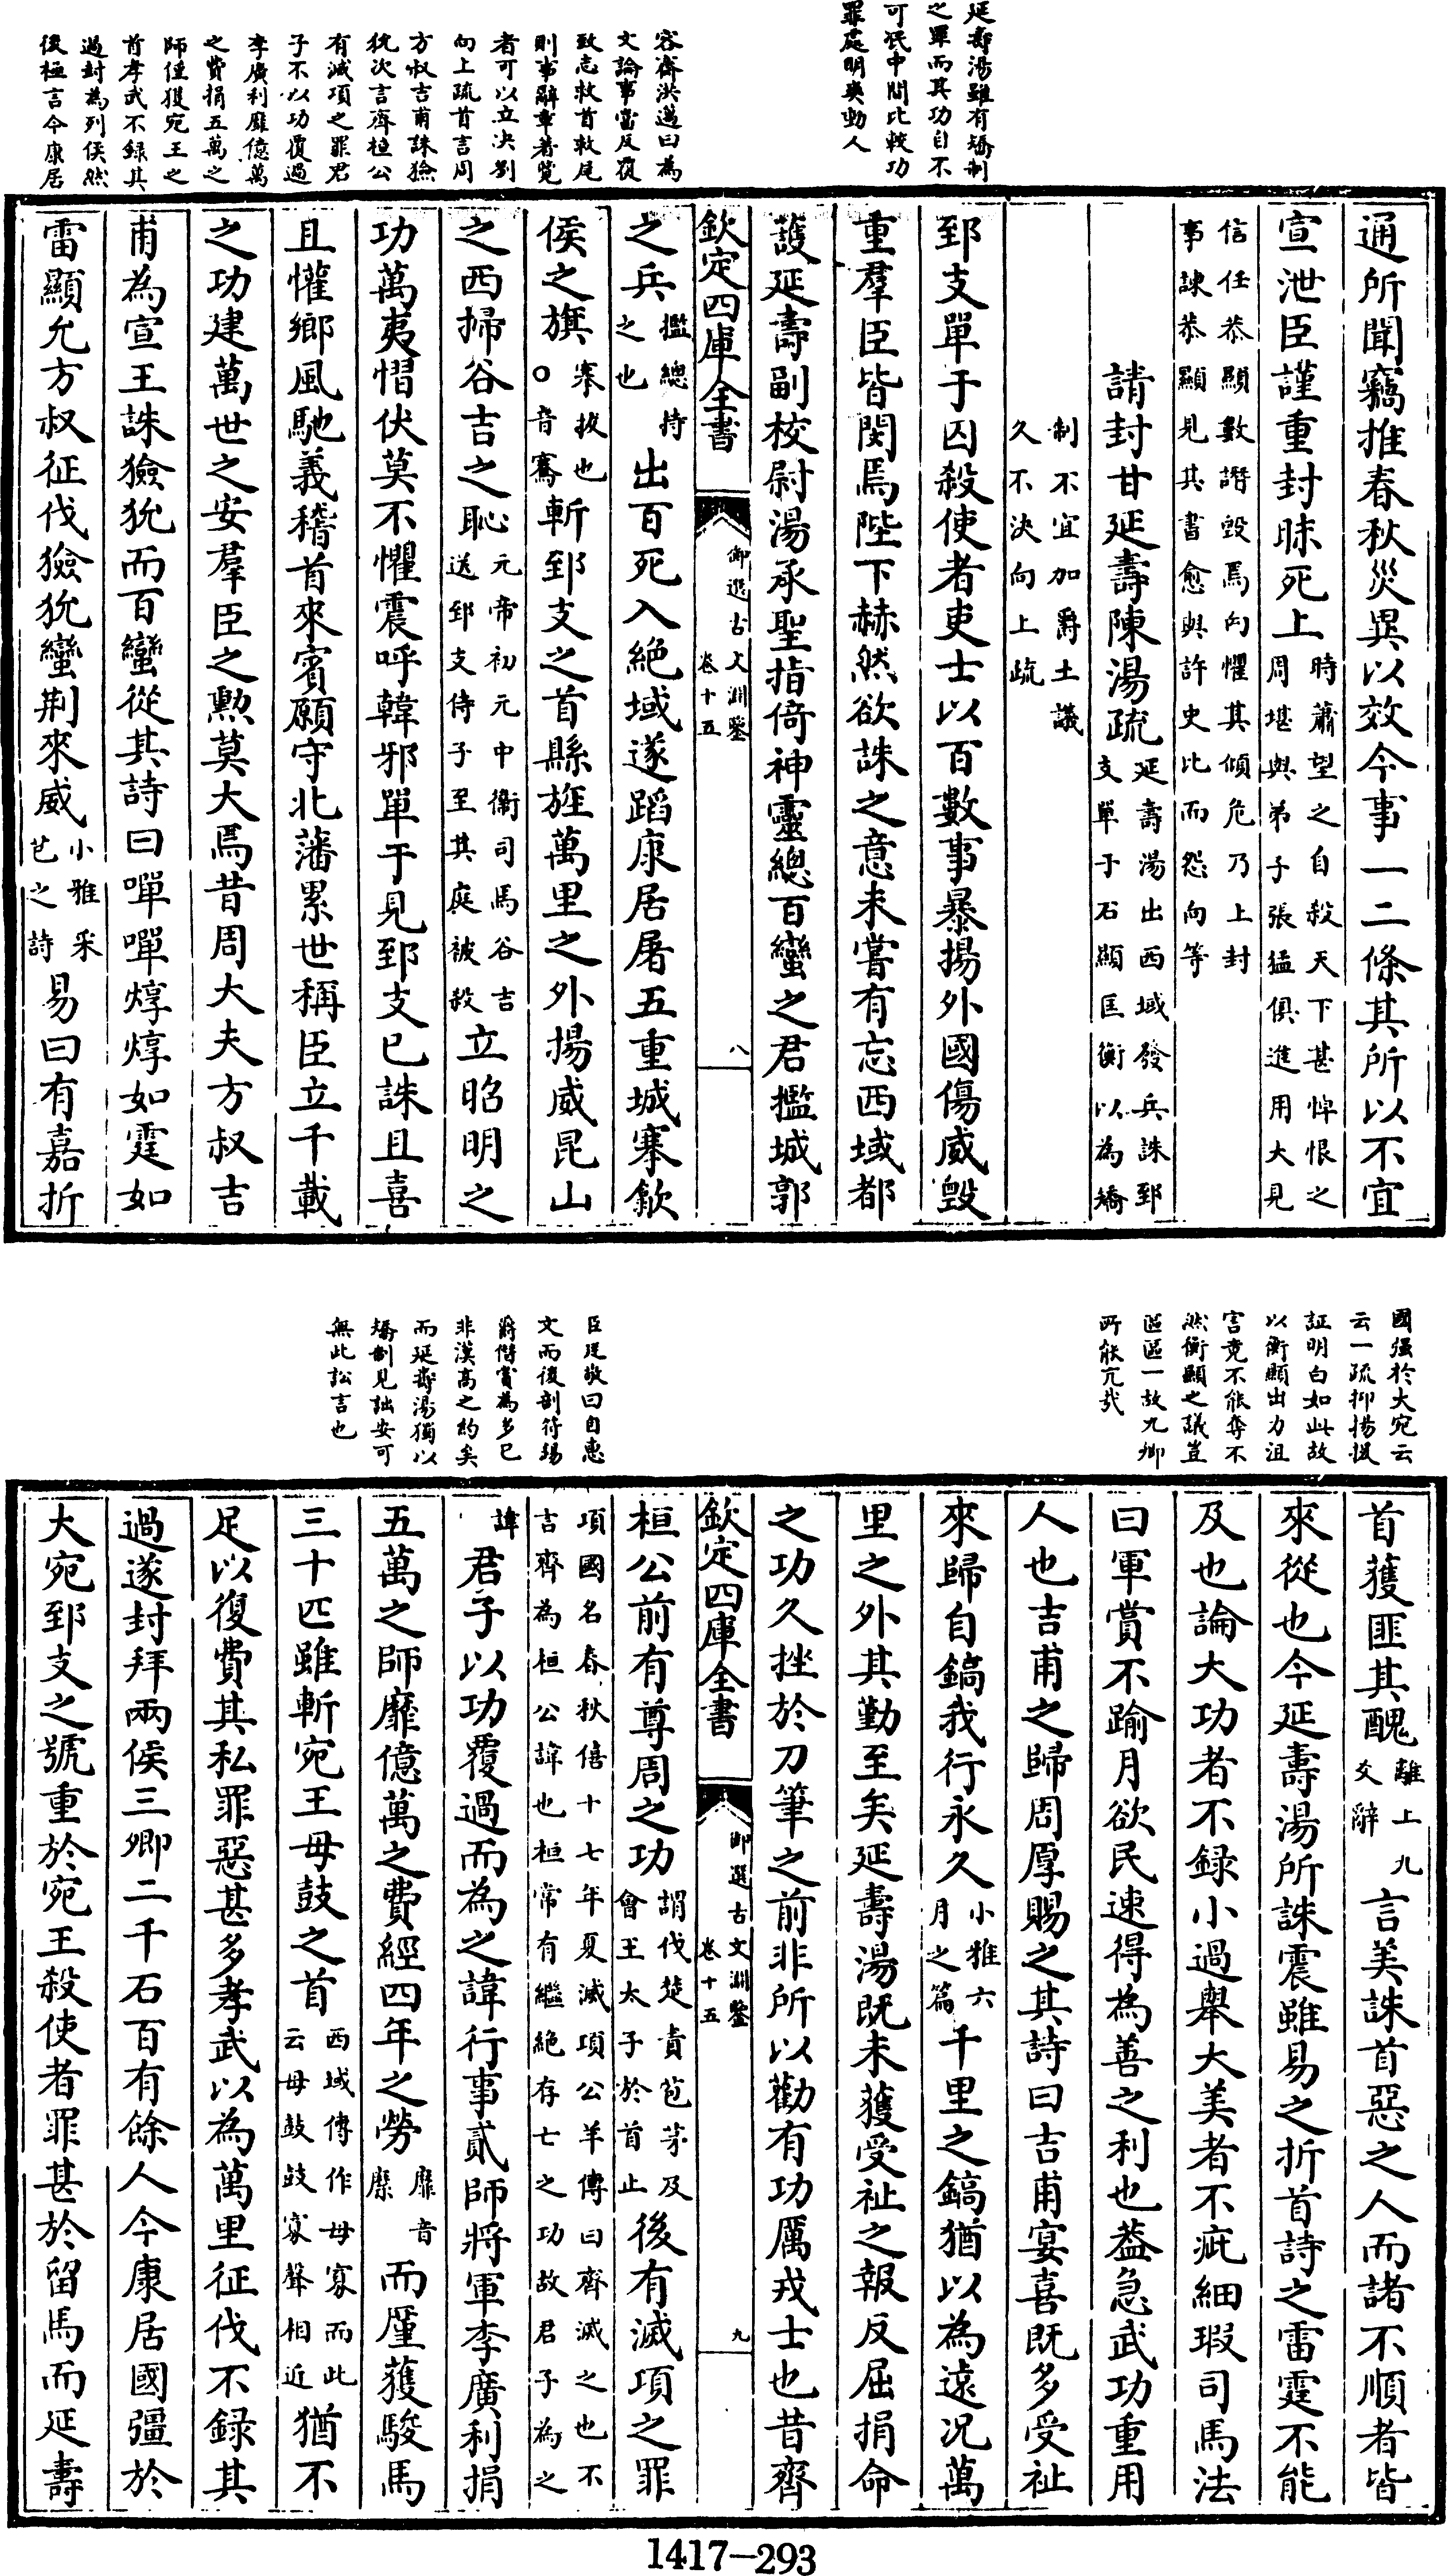 延壽湯雖有矯制
之罪而其功自不
可泯中間比較功
罪處明爽動人
容齋洪邁曰為
文論事當反覆
致志救首救尾
則事辭章著覽
者可以立決劉
向上疏首言周
方叔吉甫誅獫
狁次言齊桓公
有滅項之罪君
子不以功覆過
李廣利靡億萬
之費捐五萬之
師僅獲宛王之
首孝武不録其
過封為列侯然
後極言今康居
通所聞竊推春秋災異以效今事一二條其所以不宜
宣泄臣謹重封昧死上時蕭望之自殺天下甚悼恨之
周堪與弟子張猛俱進用大見
信任恭顯數譖毁焉向懼其傾危乃上封
事諫恭顯見其書愈與許史比而怨向等
請封甘延壽陳湯疏延壽湯出西域發兵誅郅
支單于石顯匡衡以為矯
制不宜加爵土議
久不決向上疏
郅支單于囚殺使者吏士以百數事暴揚外國傷威毁
重羣臣皆閔焉陛下赫然欲誅之意未嘗有忘西域都
護延壽副校尉湯承聖指倚神靈總百蠻之君㩜城郭
欽定四庫全書
御選古文淵鑒
卷十五
八
之兵㩜總持
之也出百死入絶域遂蹈康居屠五重城搴歙
侯之旗搴拔也
○音騫斬郅支之首縣旌萬里之外揚威昆山
之西掃谷吉之恥元帝初元中衞司馬谷吉
送郅支侍子至其庭被殺立昭明之
功萬夷慴伏莫不懼震呼韓邪單于見郅支已誅且喜
且懼鄉風馳義稽首來賓願守北藩累世稱臣立千載
之功建萬世之安羣臣之勲莫大焉昔周大夫方叔吉
甫為宣王誅獫狁而百蠻從其詩曰嘽嘽焞焞如霆如
雷顯允方叔征伐獫狁蠻荆來威小雅采
芑之詩易曰有嘉折
國强於大宛云
云一疏抑揚援
証明白如此故
以衡顯出力沮
害竟不能奪不
然衡顯之議豈
區區一故九卿
所能亢哉
臣廷敬曰自惠
文而後剖符錫
爵僭賞為多已
非漢高之約矣
而延壽湯獨以
矯制見詘安可
無此訟言也
首獲匪其醜離上九
爻辭言美誅首惡之人而諸不順者皆
來從也今延壽湯所誅震雖易之折首詩之雷霆不能
及也論大功者不録小過舉大美者不疵細瑕司馬法
曰軍賞不踰月欲民速得為善之利也葢急武功重用
人也吉甫之歸周厚賜之其詩曰吉甫宴喜既多受祉
來歸自鎬我行永久小雅六
月之篇千里之鎬猶以為遠况萬
里之外其勤至矣延壽湯既未獲受祉之報反屈捐命
之功久挫於刀筆之前非所以勸有功厲戎士也昔齊
欽定四庫全書
御選古文淵鑒
卷十五
九
桓公前有尊周之功謂伐楚責苞茅及
會王太子於首止後有滅項之罪
項國名春秋僖十七年夏滅項公羊傳曰齊滅之也不
言齊為桓公諱也桓常有繼絶存亡之功故君子為之
諱君子以功覆過而為之諱行事貳師將軍李廣利捐
五萬之師靡億萬之費經四年之勞靡音
縻而厪獲駿馬
三十匹雖斬宛王毋鼓之首西域傳作毋寡而此
云毋鼓鼓寡聲相近猶不
足以復費其私罪惡甚多孝武以為萬里征伐不録其
過遂封拜兩侯三卿二千石百有餘人今康居國彊於
大宛郅支之號重於宛王殺使者罪甚於留馬而延壽
1417—293